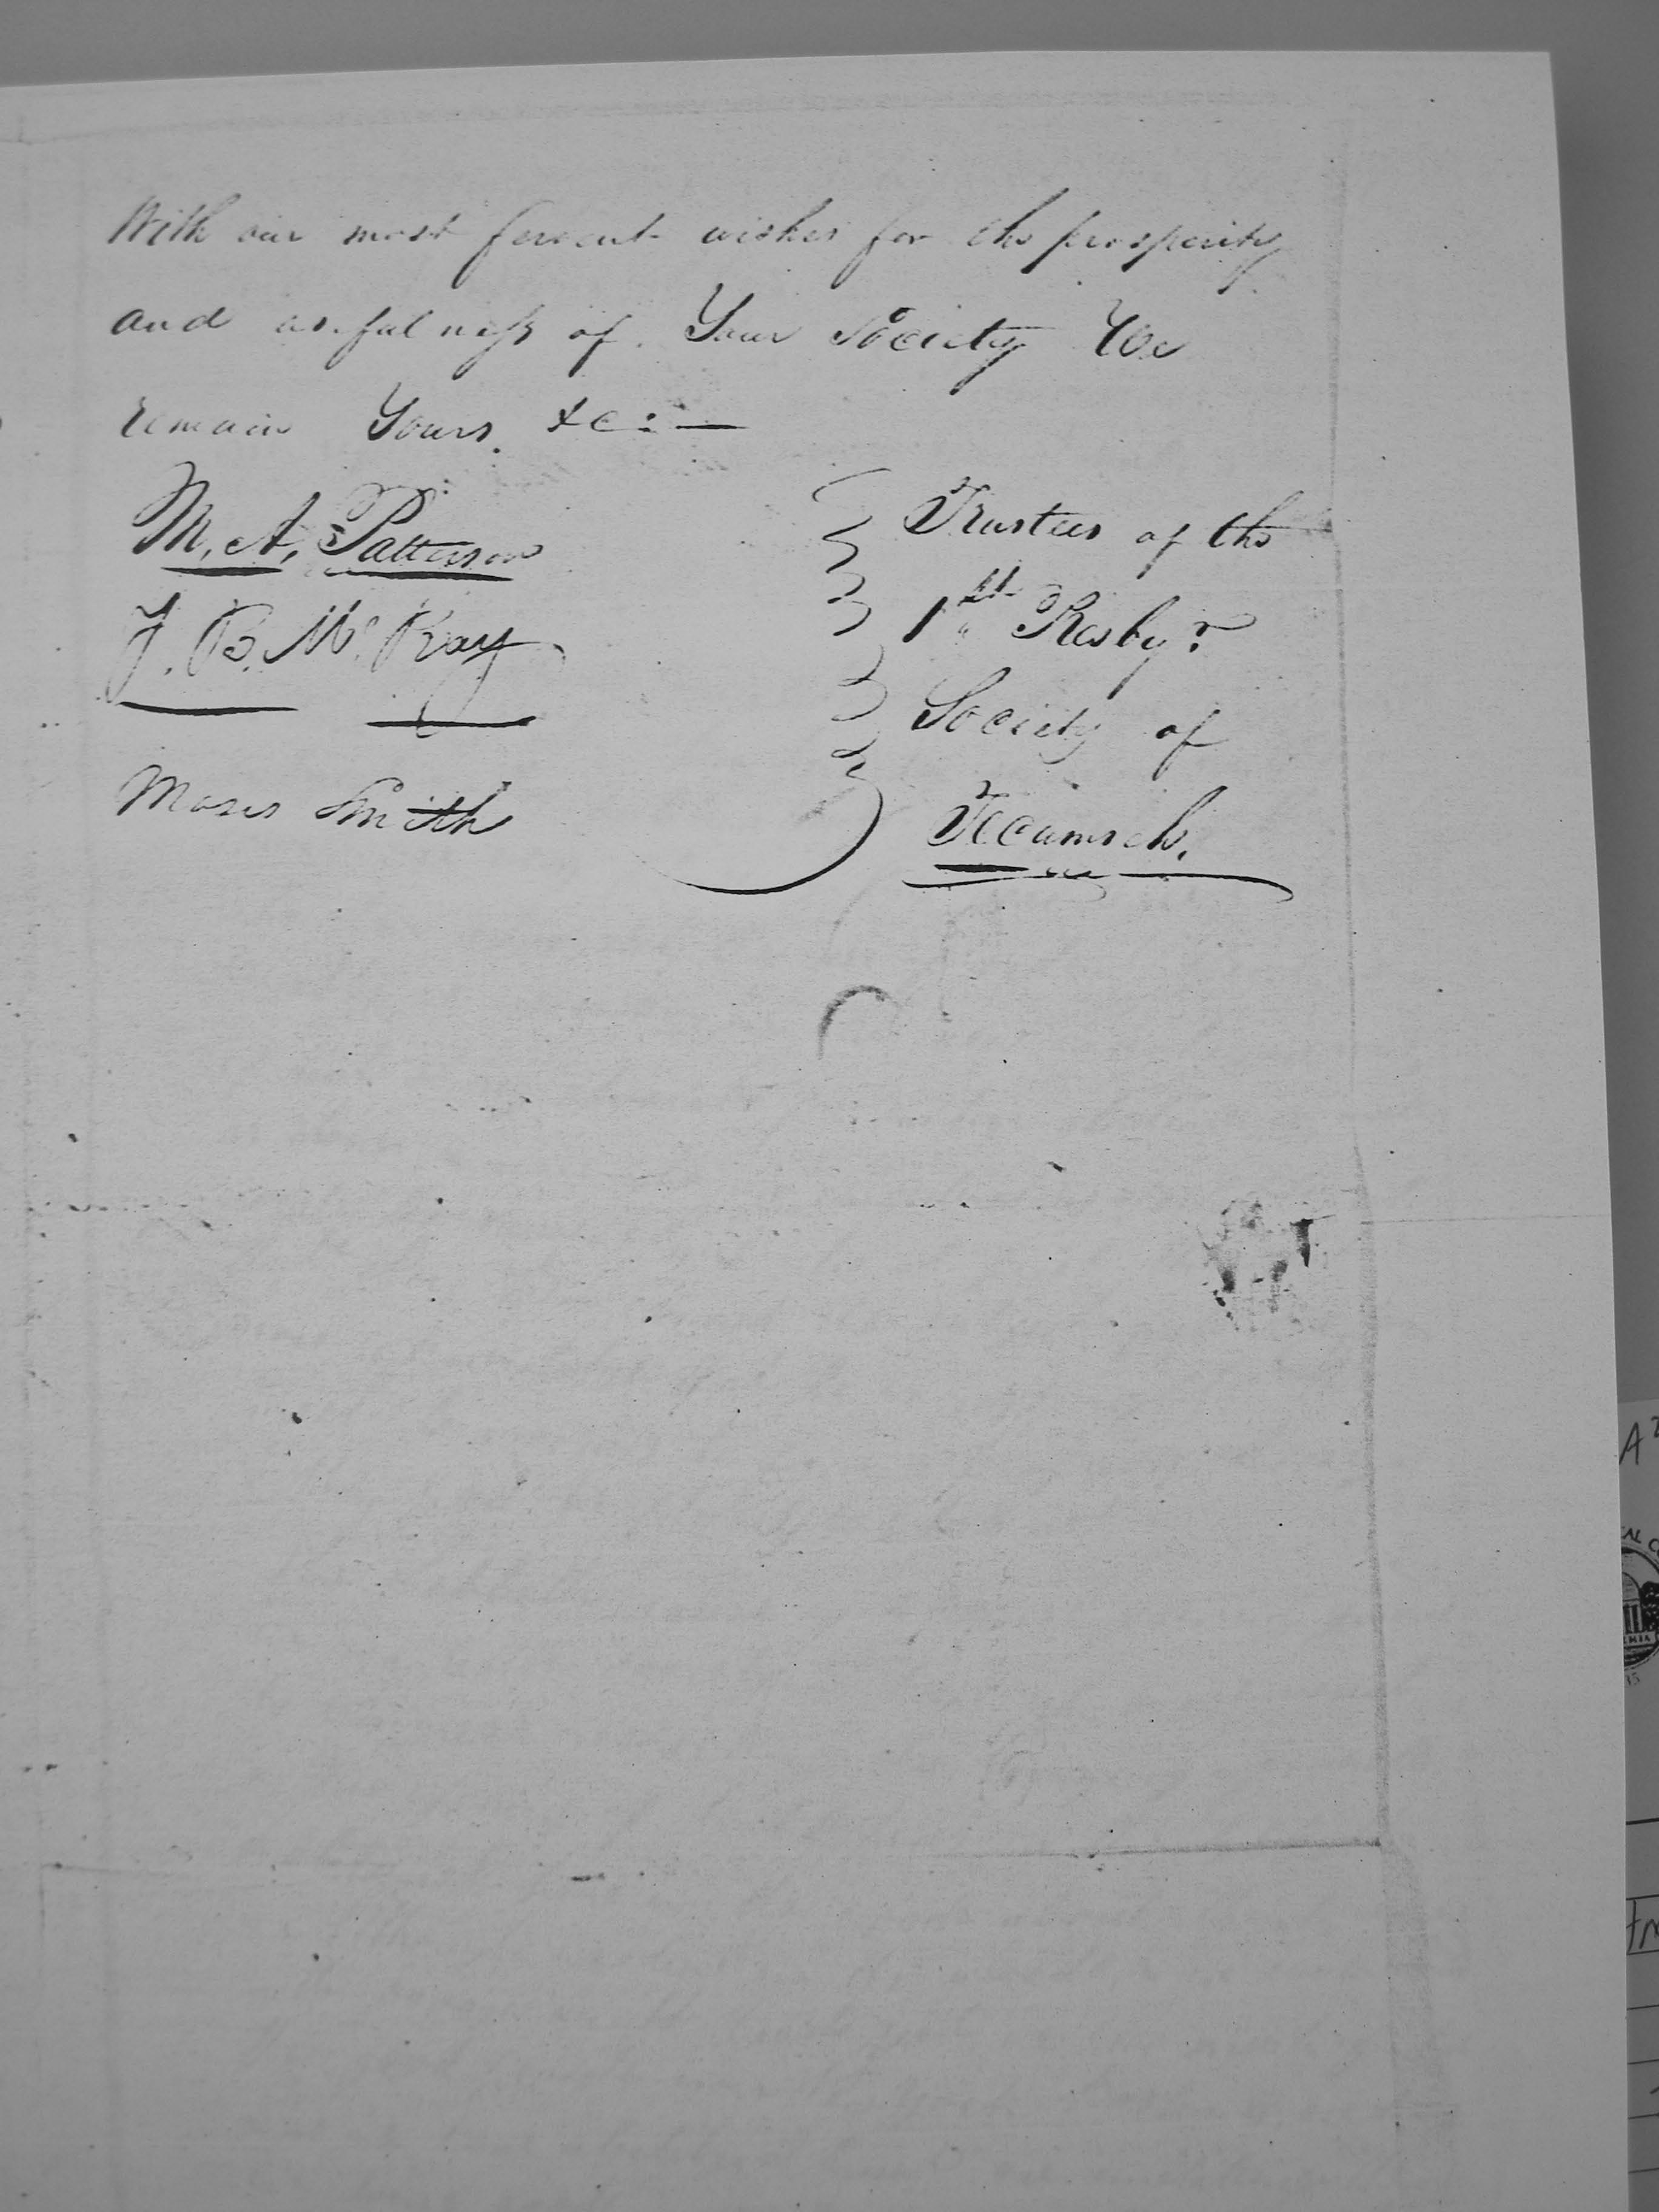 With our most fervent wishes for the prosperity
and usefulness of Your Society We
remain Yours. &c: —
M. A. Patterson
J. B. Mc Kay
Moses Smith
Trustees of the
1st Presbyr
Society of
Tecumseh.